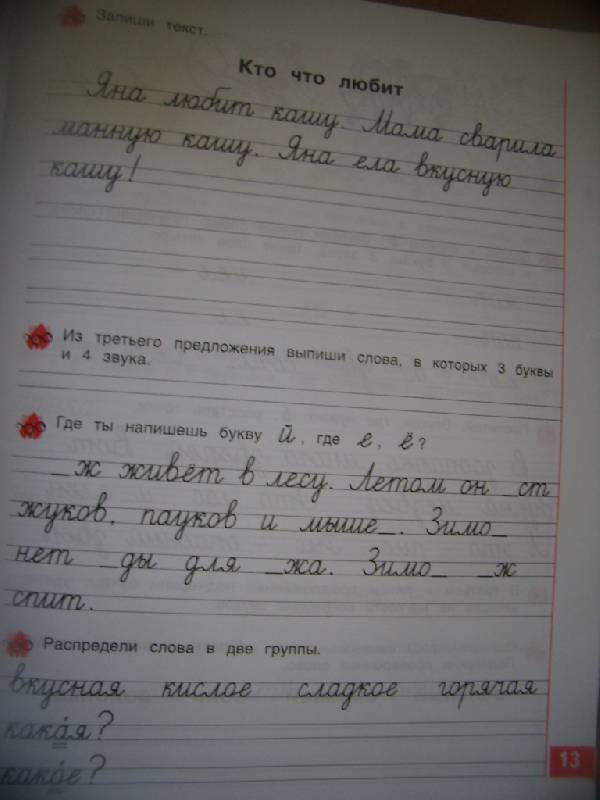 Запиши текст.
Кто что любит
Яна любит кашу. Мама сварила
манную кашу. Яна ела вкусную
кашу!
Из третьего предложения выпиши слова, в которых 3 буквы
и 4 звука.
Где ты напишешь букву й, где е, ё?
_ж живёт в лесу. Летом он _ст
жуков, пауков и мыше_. Зимо_
нет _ды для _жа. Зимо_ _ж
спит.
Распредели слова в две группы.
вкусная кислое сладкое горячая
кака́я?
како́е?
13